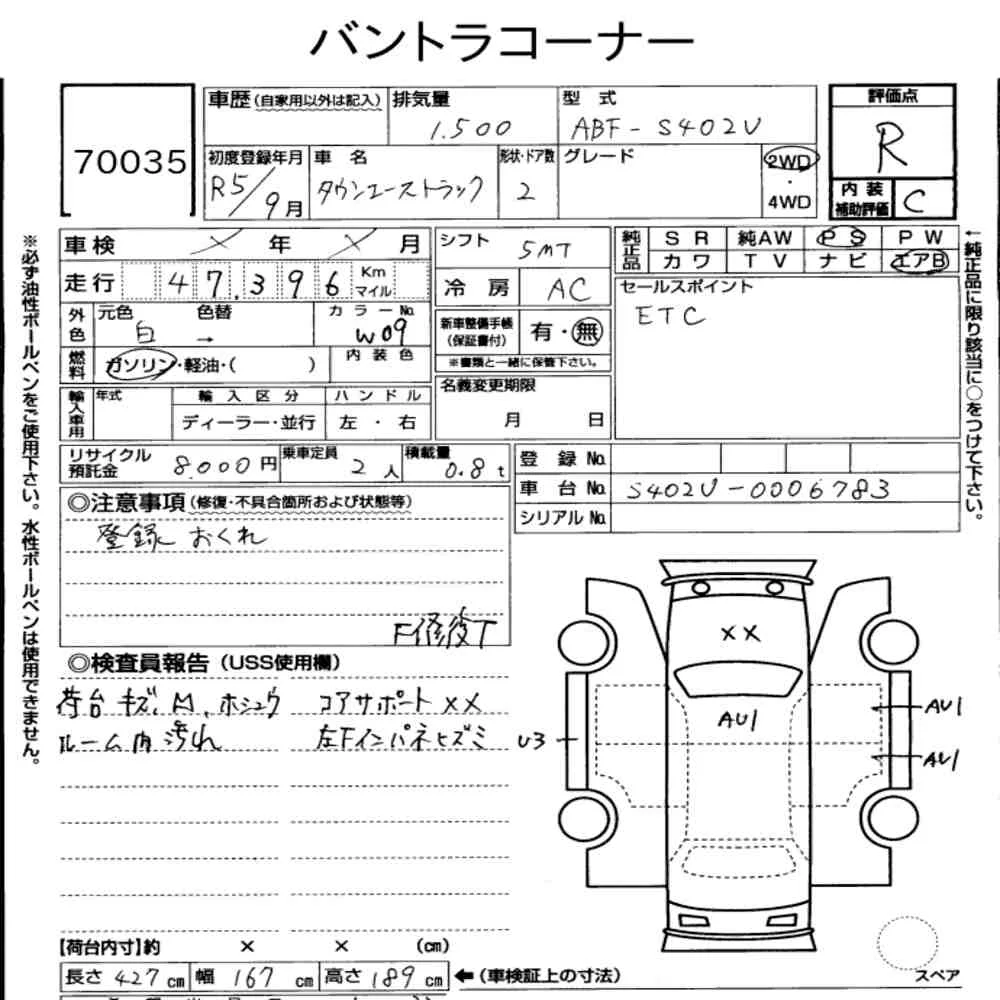 バントラコーナー
70035
車歴(自家用以外は記入) 排気量 型式 評価点
1.500 ABF-S402V R
初度登録年月 車名 形状・ドア数 グレード 2WD
R5/9月 タウンエーストラック 2 ・ 4WD
内装補助評価 C
車検 × 年 × 月 シフト 5MT
純正品 SR 純AW PS PW
カワ TV ナビ エアB
走行 47.396 Km マイル 冷房 AC
セールスポイント
ETC
外色 元色 色替 カラーNo.
白 → W09
新車整備手帳(保証書付) 有・無
※書類と一緒に保管下さい。
燃料 ガソリン・軽油・( ) 内装色
名義変更期限
月 日
輸入車用 年式 輸入区分 ハンドル
ディーラー・並行 左・右
リサイクル預託金 8.000円 乗車定員 2人 積載量 0.8t
登録No.
車台No. S402U-0006783
シリアルNo.
◎注意事項(修復・不具合箇所および状態等)
登録おくれ
F修復T
◎検査員報告(USS使用欄)
荷台キズ、M、ホシュウ コアサポートXX
ルーム内汚れ 左Fインパネヒズミ
XX
AU1
U3
AU1
AU1
【荷台内寸】約 × × (cm)
長さ 427cm 幅 167cm 高さ 189cm ←(車検証上の寸法)
スペア
※必ず油性ボールペンをご使用下さい。水性ボールペンは使用できません。
←純正品に限り該当に○をつけて下さい。